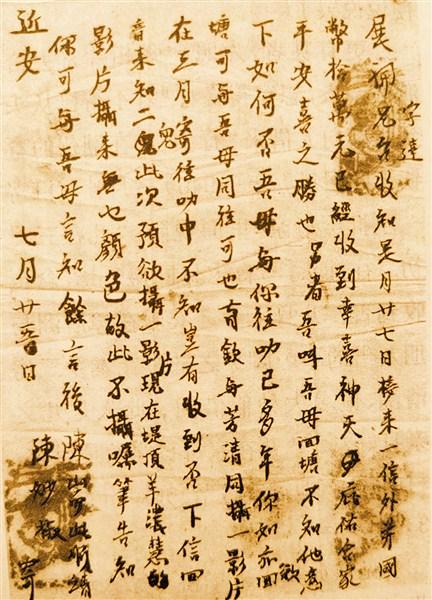 字達
展珮兄台收知是月廿七日接来一信外并國
幣拾萬元已經收到幸喜神天庇佑合家
平安喜之勝也另者吾叫吾母回塘不知他意
下如何否吾母每你往叻已多年你如亦回
塘可每吾母同往可也育欽每芳清同攝一影片
在三月寄往叻中不知豈有收到否下信回
音来知二鬼此次預欲攝一影現在堤頂羊
影片攝来無乜顏色故此不攝囑筆告知
你可每吾母言知餘言後陳此順請
近安 七月廿日
陳妙 寄